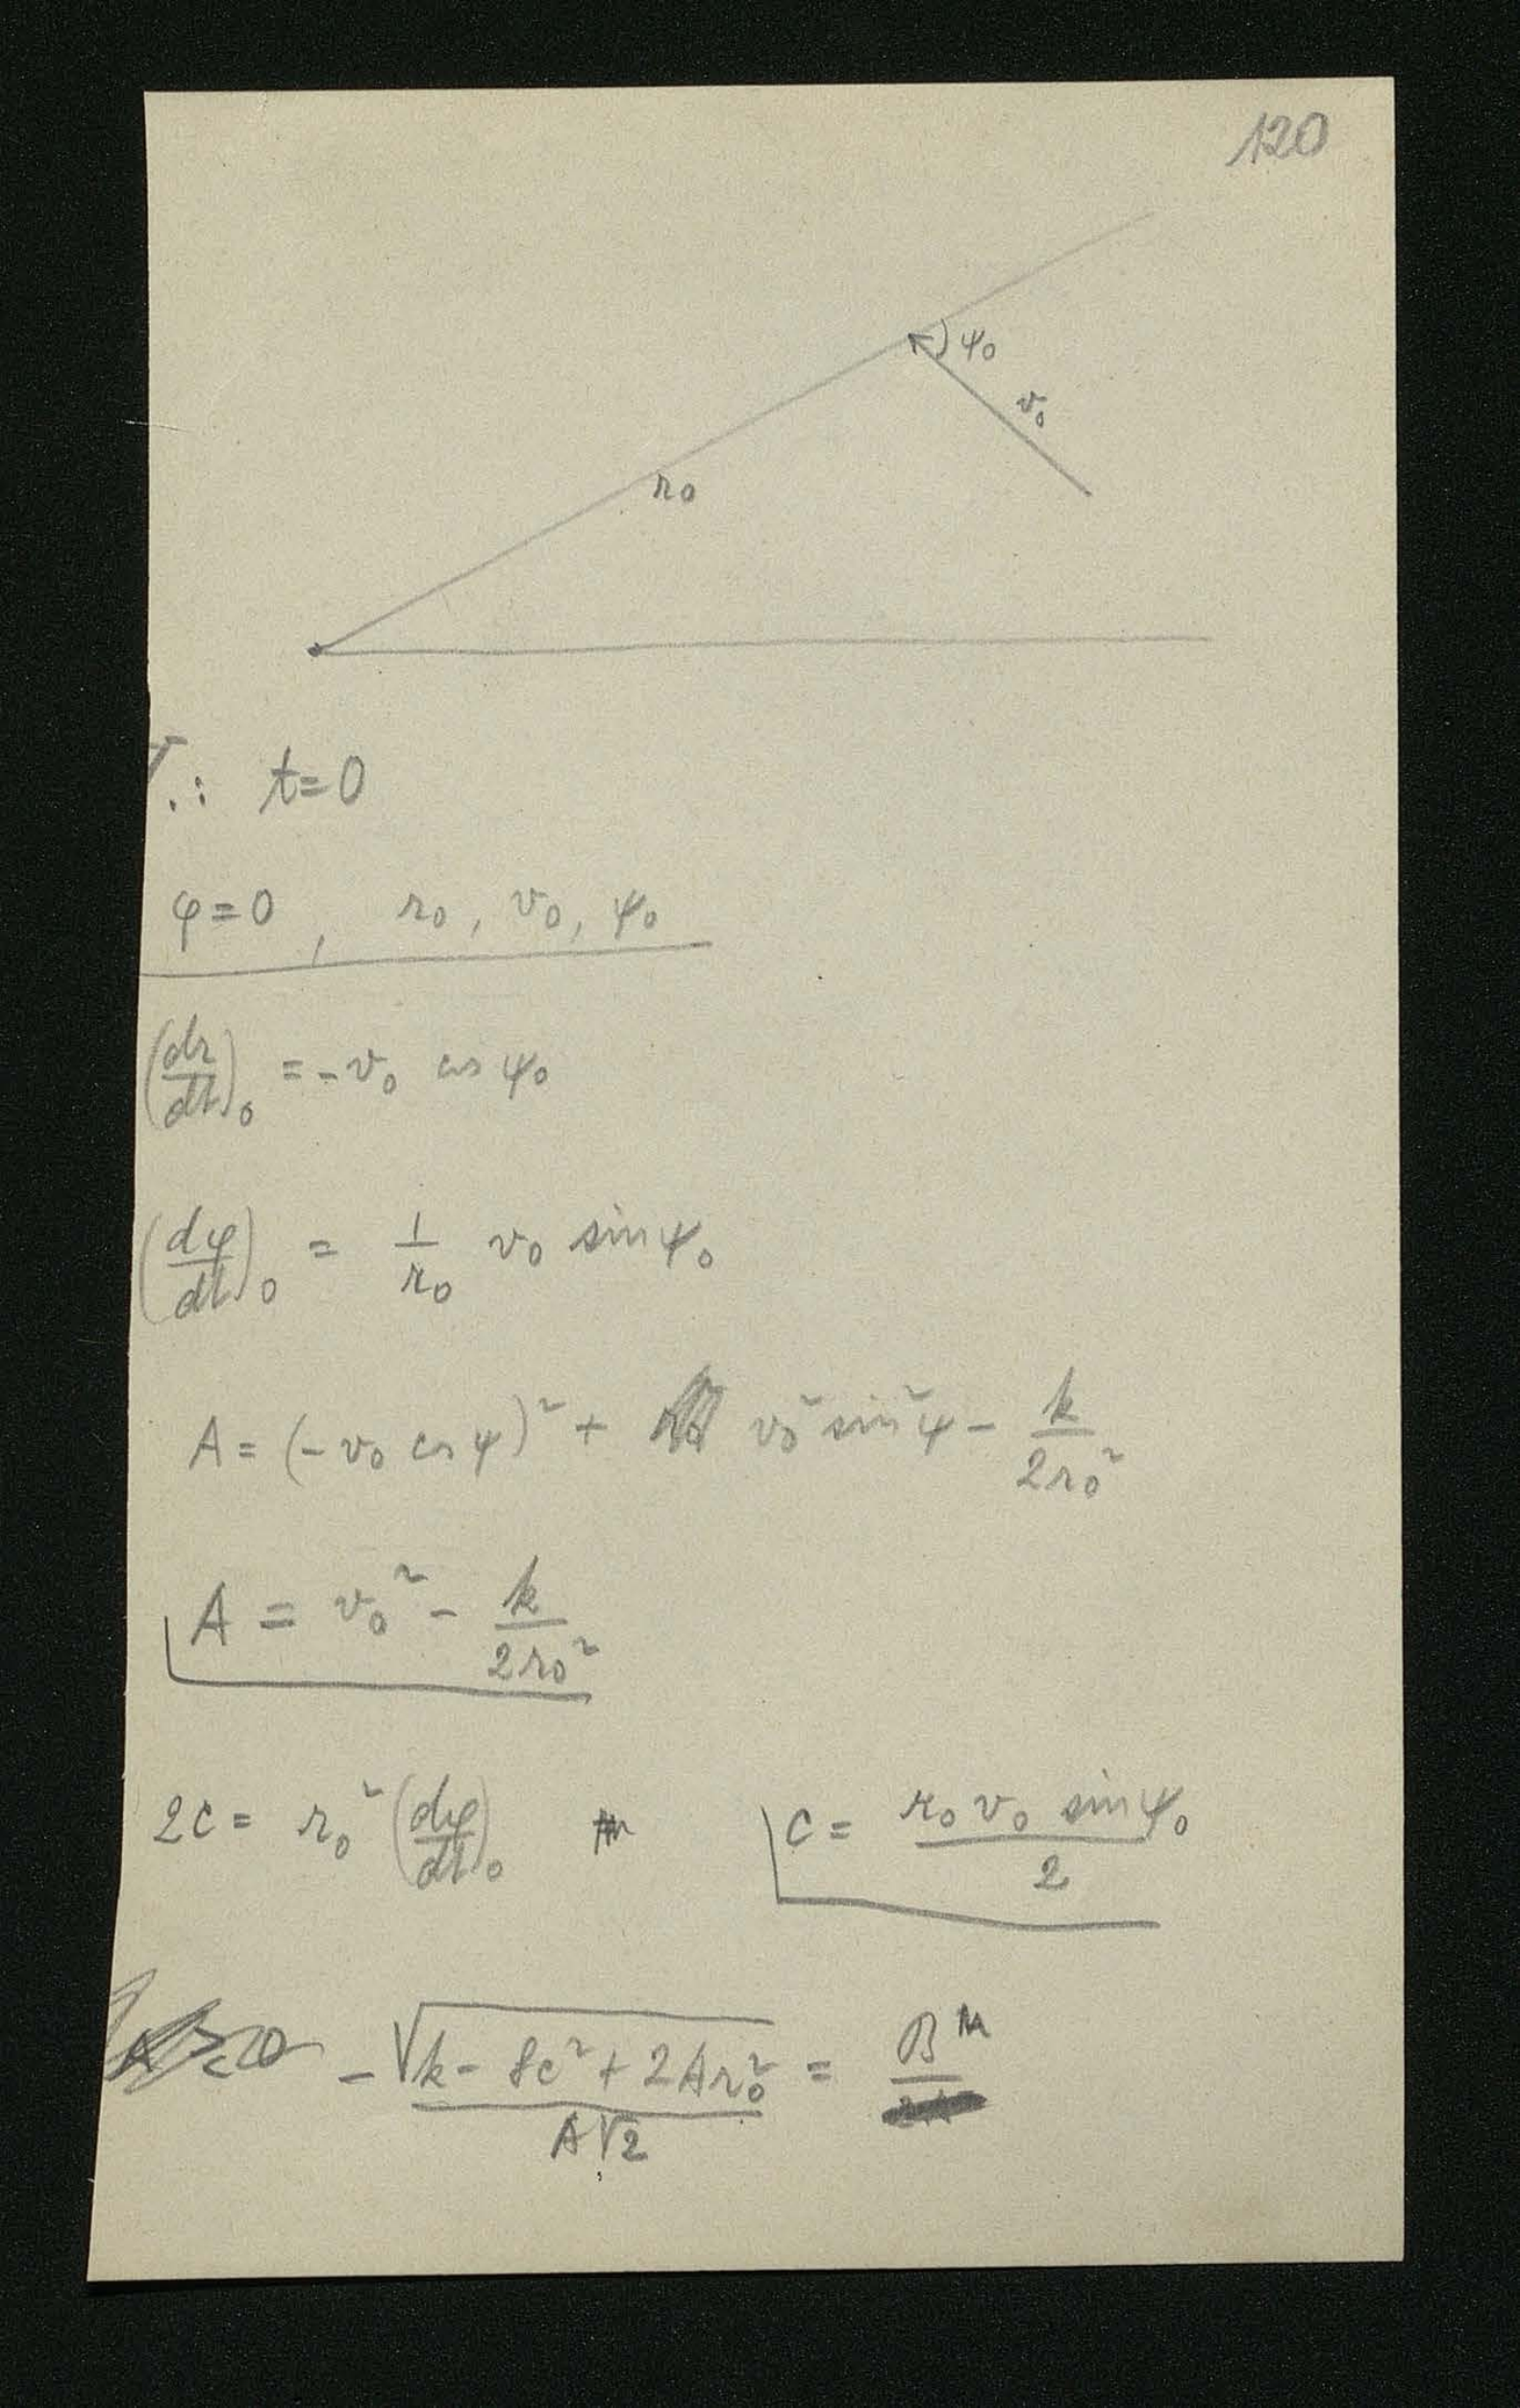 120
ψ₀
v₀
r₀
T.: t=0
φ=0 , r₀, v₀, ψ₀
(dr/dt)₀ = -v₀ cos ψ₀
(dφ/dt)₀ = 1/r₀ v₀ sin ψ₀
A = (-v₀ cos ψ)² + v₀² sin² ψ - k/2r₀²
A = v₀² - k/2r₀²
2c = r₀² (dφ/dt)₀ c = r₀ v₀ sin ψ₀/2
-√(k - 8c² + 2Ar₀²)/A√2 = B